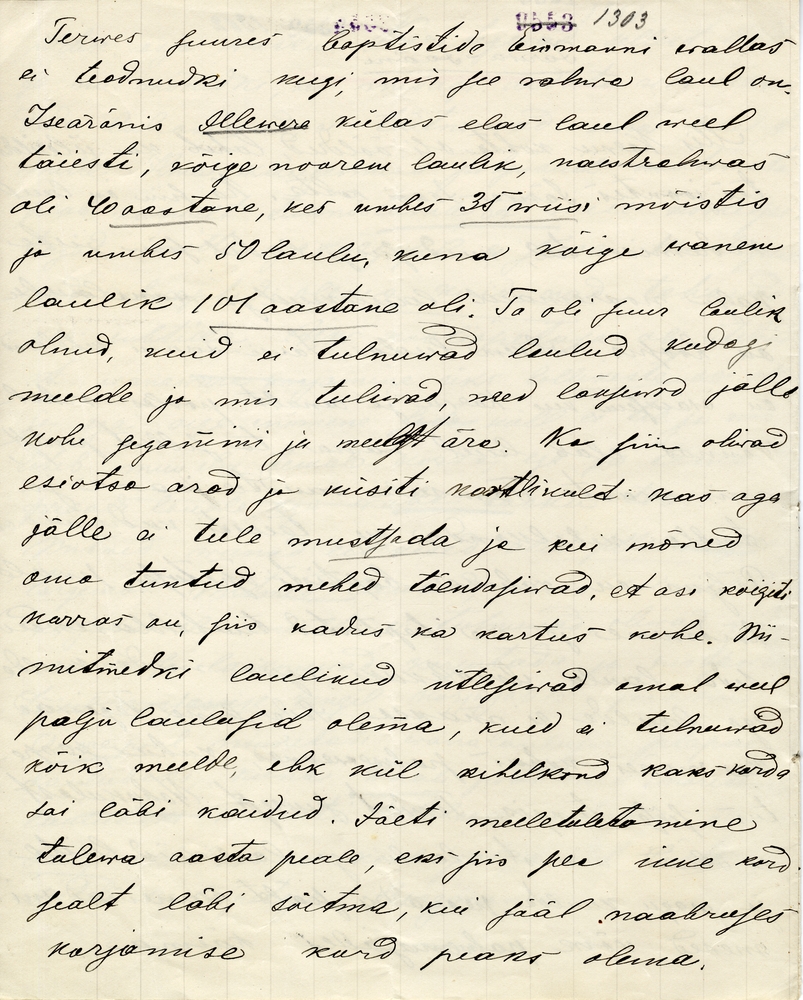 9553 1303
Terwes suures Baptistide Einmanni wallas
ei teadnudki keegi, mis see rahwa laul on.
Iseäranis Illewere külas elas laul weel
täiesti, kõige noorem laulik, naesterahwas
oli 40 aastane, kes umbes 35 wiisi mõistis
ja umbes 50 laulu, kuna kõige wanem
laulik 101 aastane oli. Ta oli suur laulik
olnud, kuid ei tulnuwad laulud kudagi
meelde ja mis tuliwad, need läksiwad jälle
kohe segamini ja meelest ära. Ka siin oliwad
esiotsa arad ja küsiti kartlikult: kas aga
jälle ei tule mustsada ja kui mõned
oma tuntud mehed tõendasiwad, et asi kõigiti
korras on, siis kadus ka kartus kohe. Nii-
mitmedki laulikud ütlesiwad omal weel
palju laulusid olema, kuid ei tulnuwad
kõik meelde, ehk kül kihelkond kaks korda
sai läbi käidud. Jäeti meeletuletamine
tulewa aasta peale, eks siis pea inne kord
sealt läbi sõitma, kui sääl naabruses
korjamise kord peaks olema.